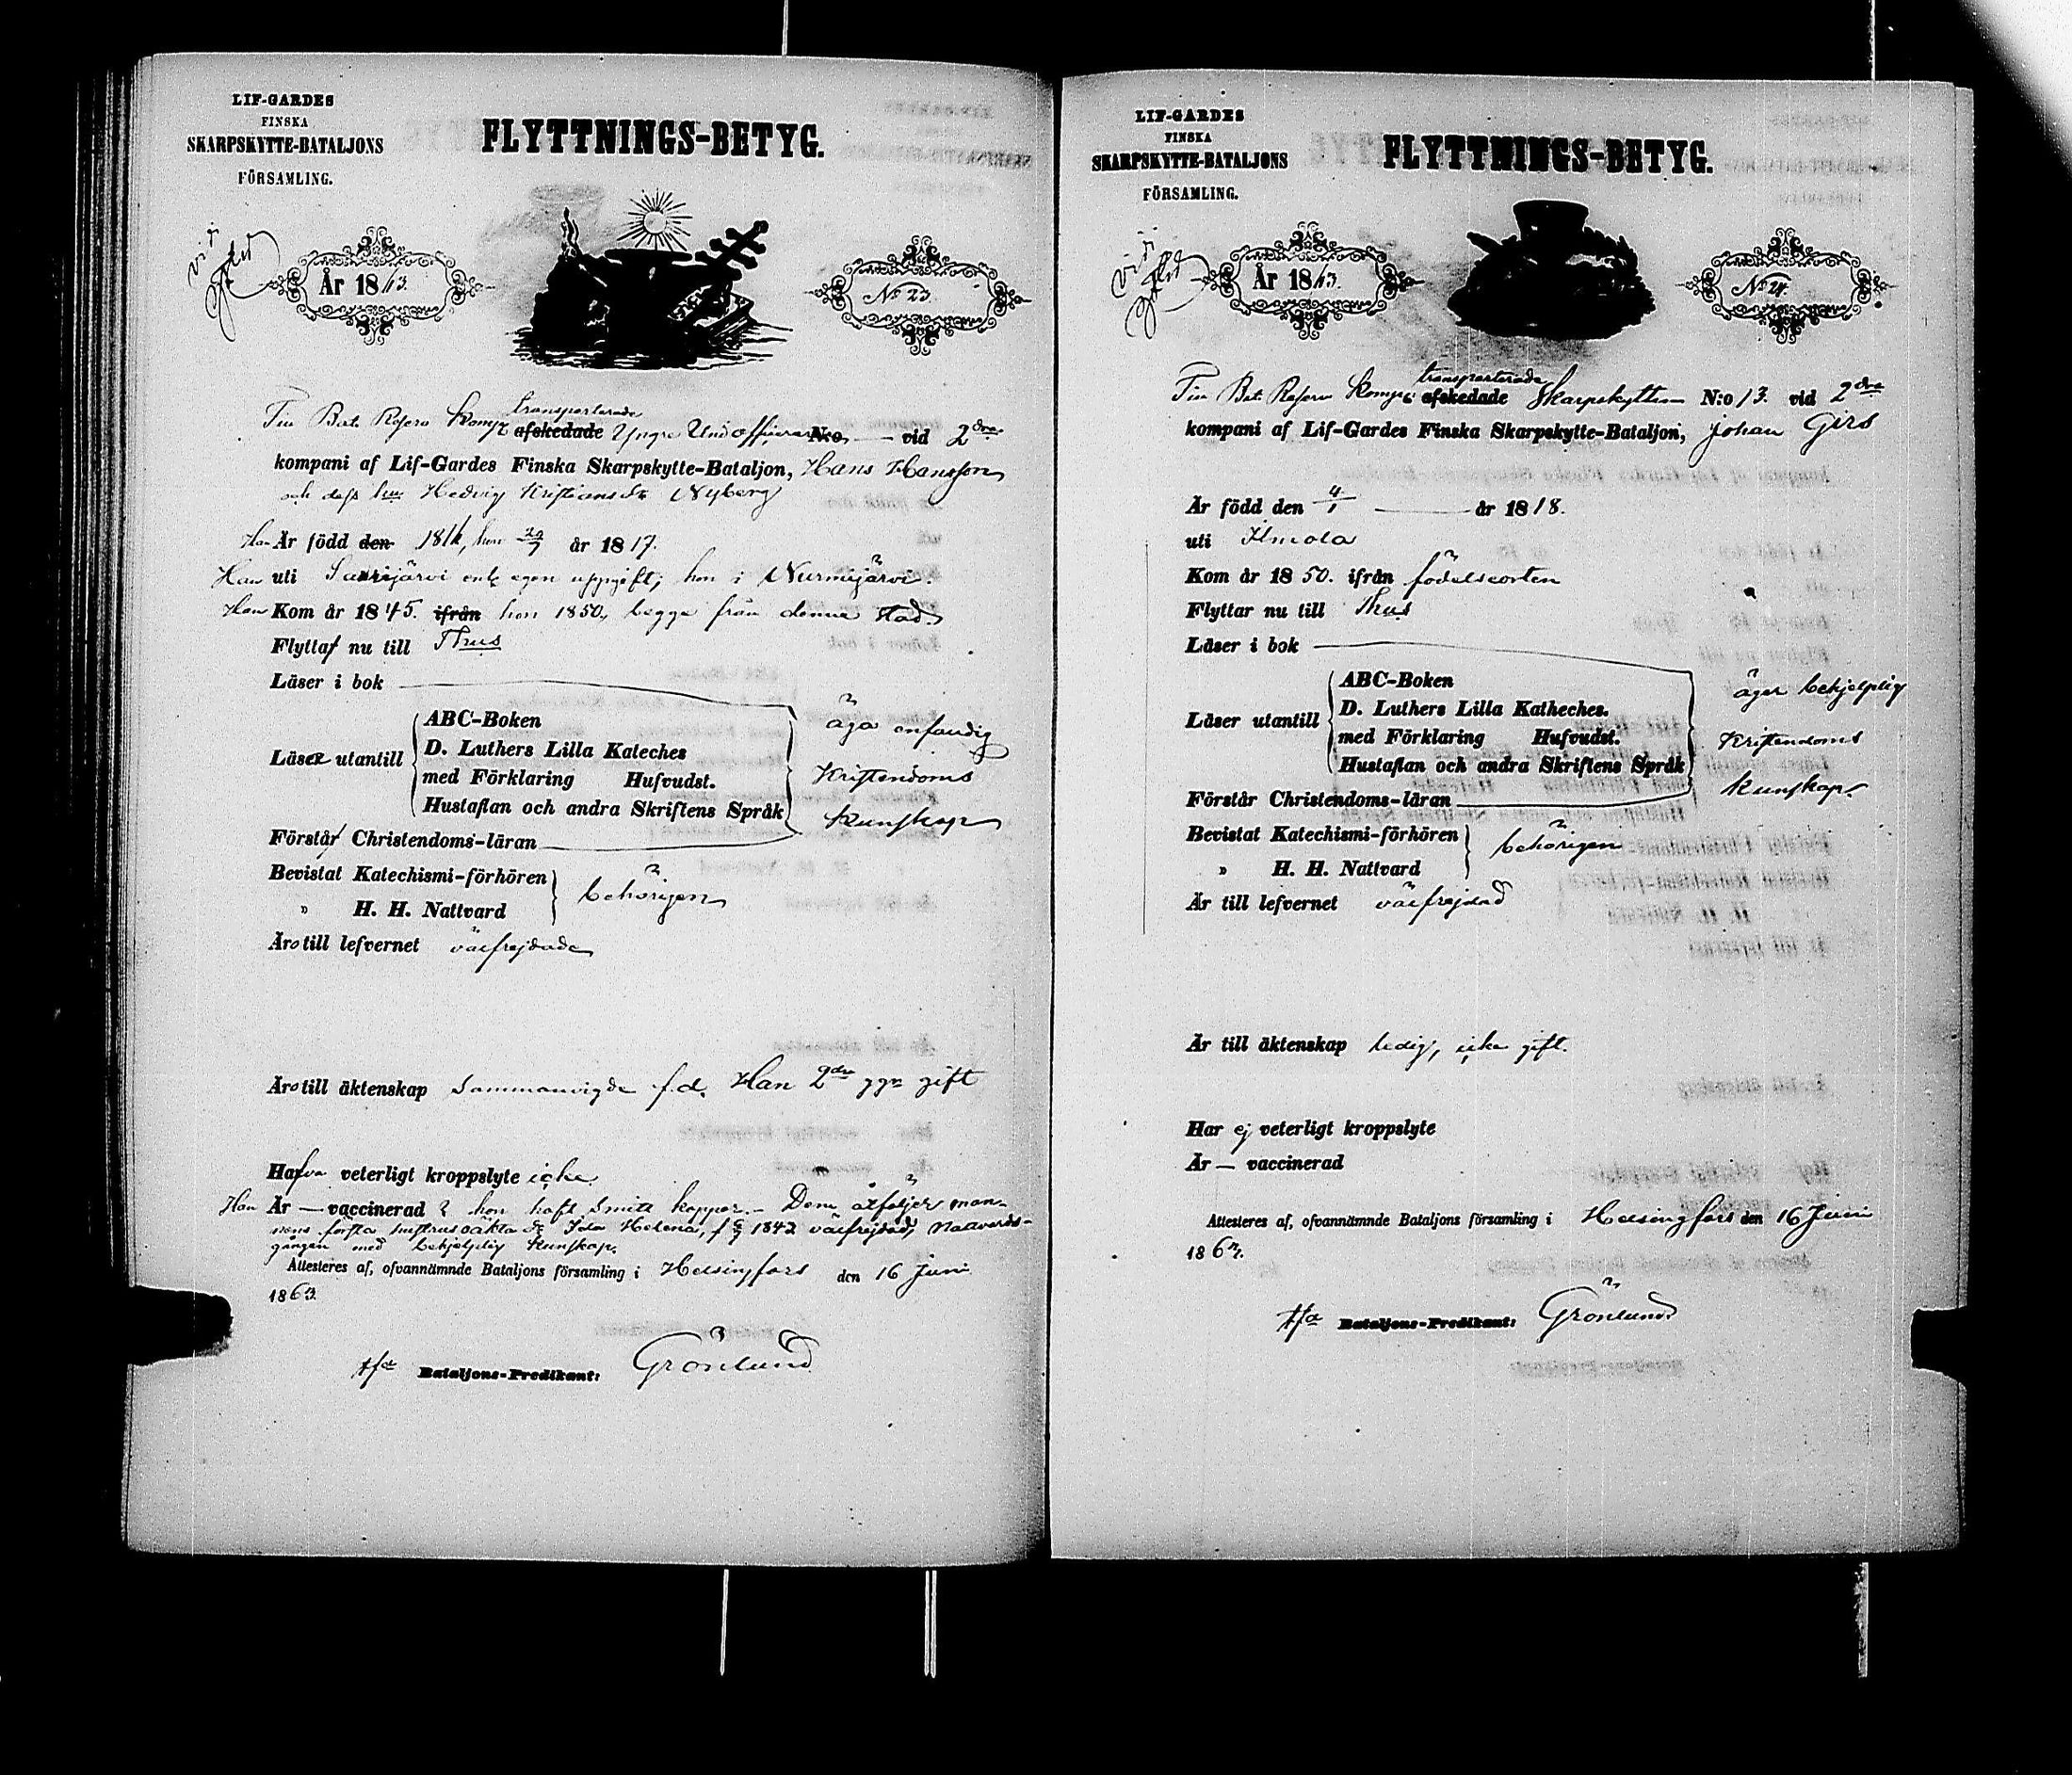 LIF-GARDES
FINSKA
SKARPSKYTTE-BATALJONS
FÖRSAMLING.
FLYTTNINGS-BETYG.
År 1863.
No 23.
transporterade
Till Bat. Reserv Komp. afskedade Yngre Underofficeren N:o — vid 2dra
kompani af Lif-Gardes Finska Skarpskytte-Bataljon, Hans Hansson
och dess hu Hedvig Kristiansdr Nyberg
Han Är född den 1816, hon 29/7 år 1817.
Han uti Saarijärvi enl. egen uppgift; hon i Nurmijärvi.
Han Kom år 1845. ifrån hon 1850, begge från denna stad.
Flytta nu till Thus
Läser i bok
Läser utantill
ABC-Boken
D. Luthers Lilla Kateches
med Förklaring Hufvudst.
Hustaflan och andra Skriftens Språk
äga enfaldig
Kristendoms
kunskap
Förstår Christendoms-läran
Bevistat Katechismi-förhören
" H. H. Nattvard
behörigen
Äro till lefvernet välfrejdade
Äro till äktenskap Sammanvigde f.d. Han 2dra ggn gift
Hafva veterligt kroppslyte icke
Han Är — vaccinerad & hon haft Smitt koppor. – Dem åtföljer man-
nens första hustrus oäkta dr Ida Helena, f. 1842 välfrejdad, Nattvards-
gången med behjelplig kunskap.
Attesteres af, ofvannämnde Bataljons församling i Helsingfors den 16 Juni
1863.
Bataljons-Predikant: Grönlund
LIF-GARDES
FINSKA
SKARPSKYTTE-BATALJONS
FÖRSAMLING.
FLYTTNINGS-BETYG.
År 1863.
No 24.
transporterade
Till Bat. Reserv Komp. afskedade Skarpskytten N:o 13. vid 2dra
kompani af Lif-Gardes Finska Skarpskytte-Bataljon, Johan Girs
Är född den 4/1 — år 1818.
uti Ilmola
Kom år 1850. ifrån födelseorten
Flyttar nu till Thus
Läser i bok
Läser utantill
ABC-Boken
D. Luthers Lilla Katheches.
med Förklaring Hufvudst.
Hustaflan och andra Skriftens Språk
äger behjelplig
Kristendoms
kunskap.
Förstår Christendoms-läran
Bevistat Katechismi-förhören
" H. H. Nattvard
behörigen
Är till lefvernet välfrejdad
Är till äktenskap ledig, icke gift.
Har ej veterligt kroppslyte
Är — vaccinerad
Attesteres af, ofvannämnde Bataljons församling i Helsingfors den 16 Juni
1863.
Bataljons-Predikant: Grönlund